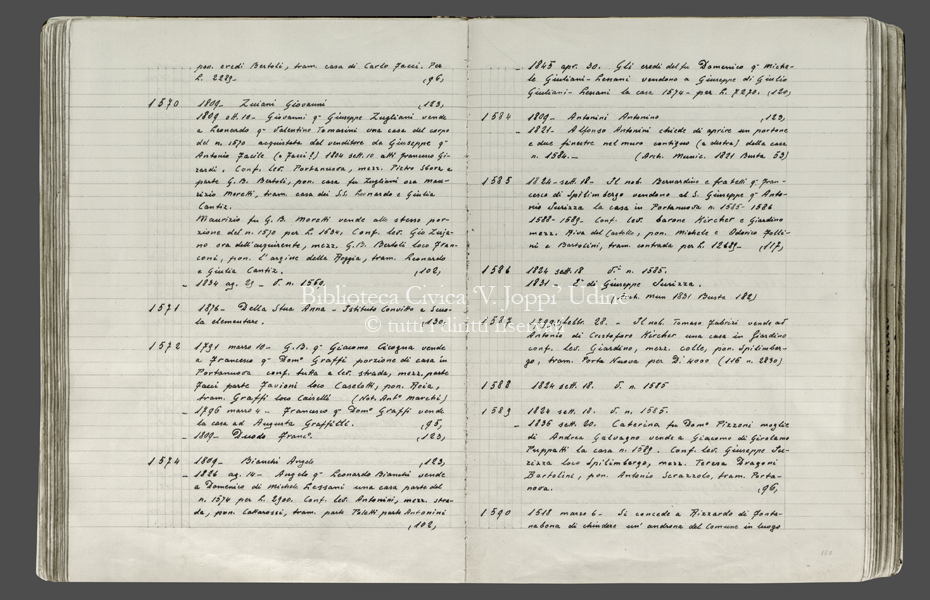 pon. eredi Bertoli, tram. casa di Carlo Facci. Per
L. 2289- (96)
1570 1809- Zuiani Giovanni (123)
1809 ott. 10- Giovanni q^m Giuseppe Zugliani vende
a Leonardo q^m Valentino Tomasini una casa del corpo
del n. 1570 acquistata dal venditore da Giuseppe q^m
Antonio Facile (o Facci?) 1804 sett. 10 atti Francesco Gi-
rardi. Conf. lev. Portanuova, mezz. Pietro
parte G.B. Bertoli, pon. casa fu Zugliani ora Mau-
rizio Moretti, tram. casa dei S.S. Leonardo e Giulia
Cantiz.
Maurizio fu G.B. Moretti vende allo stesso por-
zione del n. 1570 per L. 1634. Conf. lev. Gio
ora dell'acquirente, mezz. G.B. Bertoli loco Fran-
coni, pon. l'argine della Roggia, tram. Leonardo
e Giulia Cantiz. (102)
- 1834 ag. 29 - V. n. 1560
1571 1876- Della Stua Anna - Istituto Convitto e Scuo-
la elementare. (130)
1572 1791 marzo 10- G.B. q^m Giacomo Cicogna vende
a Francesco q^m Dom^o Graffi porzione di casa in
Portanuova conf. tutta a lev. strada, mezz. parte
Facci parte Favioni loco Caselotti, pon. Roia,
tram. Graffi loco Caiselli (Not. Ant^o Marchi)
- 1796 marzo 4- Francesco q^m Dom^o Graffi vende
la casa ad Augusta Graffi (95)
- 1809- Duodo Franc^o. (123)
1574 1809- Bianchi Angelo (123)
- 1826 ag. 10- Angelo q^m Leonardo Bianchi vende
a Domenico di Michele Lessani una casa parte del
n. 1574 per L. 2900. Conf. lev. Antonini, mezz. stra-
da, pon. Cattarossi, tram. parte Poletti parte Antonini
(102)
- 1845 apr. 30. Gli eredi del fu Domenico q^m Miche-
le Giuliani-Lessani vendono a Giuseppe di Giulio
Giuliani-Lessani la casa 1574- per L. 7270. (120)
1584 1809- Antonini Antonino (123)
- 1821- Alfonso Antonini chiede di aprire un portone
e due finestre nel muro contiguo (a destra) della casa
n. 1584.- (Arch. Munic. 1821 Busta 53)
1585 1824-sett. 18- Il nob. Bernardino e fratelli q^m Fran-
cesco di Spilimbergo vendono al S. Giuseppe q^m Anto-
nio Surizza la casa in Portanuova n. 1585-1586
1588-1589- Conf. lev. barone Kircher e Giardino
mezz. Riva del Castello, pon. Michele e Odorico
ni e Bartolini, tram. contrada per L. 12689- (117)
1586 1824 sett. 18 V. n. 1585.
1831. È di Giuseppe Surizza.
(Arch. Mun 1831 Busta 182)
1587 28. - Il nob. Tomaso Fabrizi vende ad
Antonio di Cristoforo Kircher una casa in Giardino
conf. lev. Giardino, mezz. colle, pon. Spilimber-
go, tram. Porta Nuova per D. 4000 (116 n. 2830)
1588 1824 sett. 18. V. n. 1585
1589 1824 sett. 18. V. n. 1585.
- 1836 sett. 20. Caterina fu Dom^o Pizzoni moglie
di Andrea Galvagno vende a Giacomo di Girolamo
Puppatti la casa n. 1589. Conf. lev. Giuseppe Su-
rizza loco Spilimbergo, mezz. Teresa Dragoni
Bartolini, pon. Antonio Scrazzolo, tram. Porta-
nova. (96)
1590 1518 marzo 6- Si concede a Rizzardo di Fonta-
nabona di chiudere un'androna del Comune in luogo
Biblioteca Civica 'V. Joppi' Udine
© tutti i diritti riservati